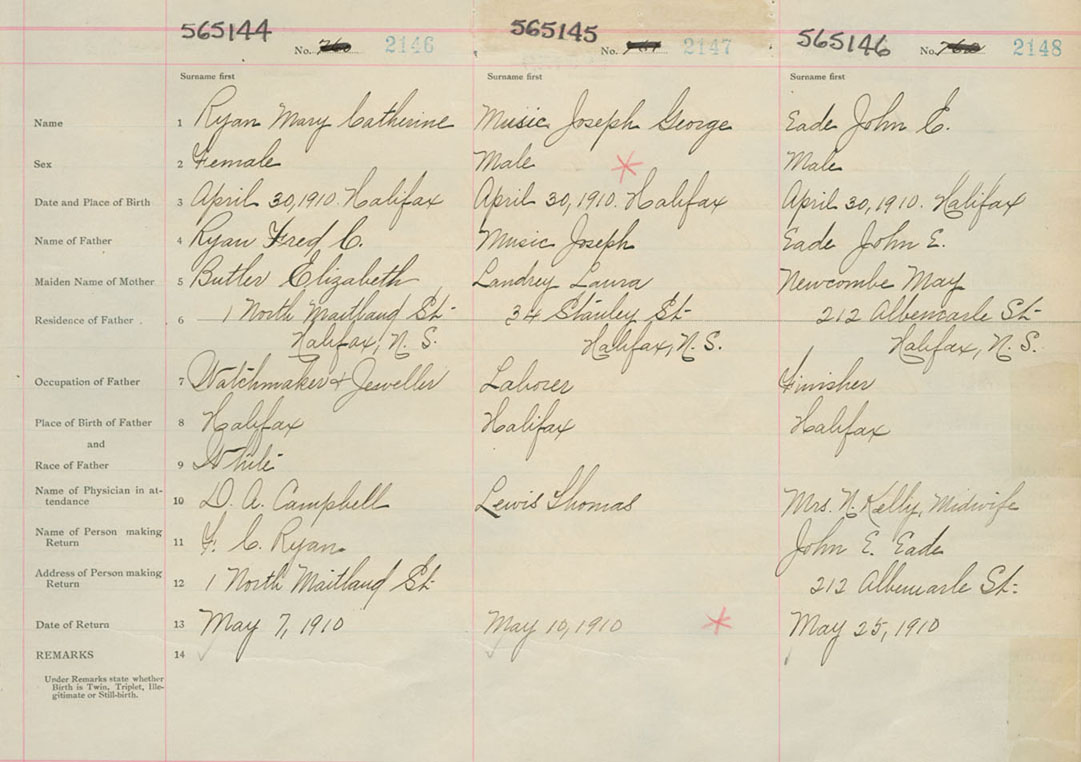 565144 No. 2146 565145 No. 2147 565146 No. 2148
Surname first Surname first Surname first
Name 1 Ryan Mary Catherine Music Joseph George Eade John E.
Sex 2 Female Male Male
Date and Place of Birth 3 April 30, 1910. Halifax April 30, 1910. Halifax April 30, 1910. Halifax
Name of Father 4 Ryan Fred C. Music Joseph Eade John E.
Maiden Name of Mother 5 Butler Elizabeth Landrey Laura Newcombe May
Residence of Father 6 1 North Maitland St- 34 Stanley St- 212 Albemarle St-
Halifax, N. S. Halifax, N. S. Halifax, N. S.
Occupation of Father 7 Watchmaker & Jeweller Laborer Finisher
Place of Birth of Father 8 Halifax Halifax Halifax
and
Race of Father 9 White
Name of Physician in at-
tendance 10 D. A. Campbell Lewis Thomas Mrs. N. Kelly, Midwife
Name of Person making
Return 11 F. C. Ryan John E. Eade
Address of Person making
Return 12 1 North Maitland St- 212 Albemarle St-
Date of Return 13 May 7, 1910 May 10, 1910 May 25, 1910
REMARKS 14
Under Remarks state whether
Birth is Twin, Triplet, Ille-
gitimate or Still-birth.